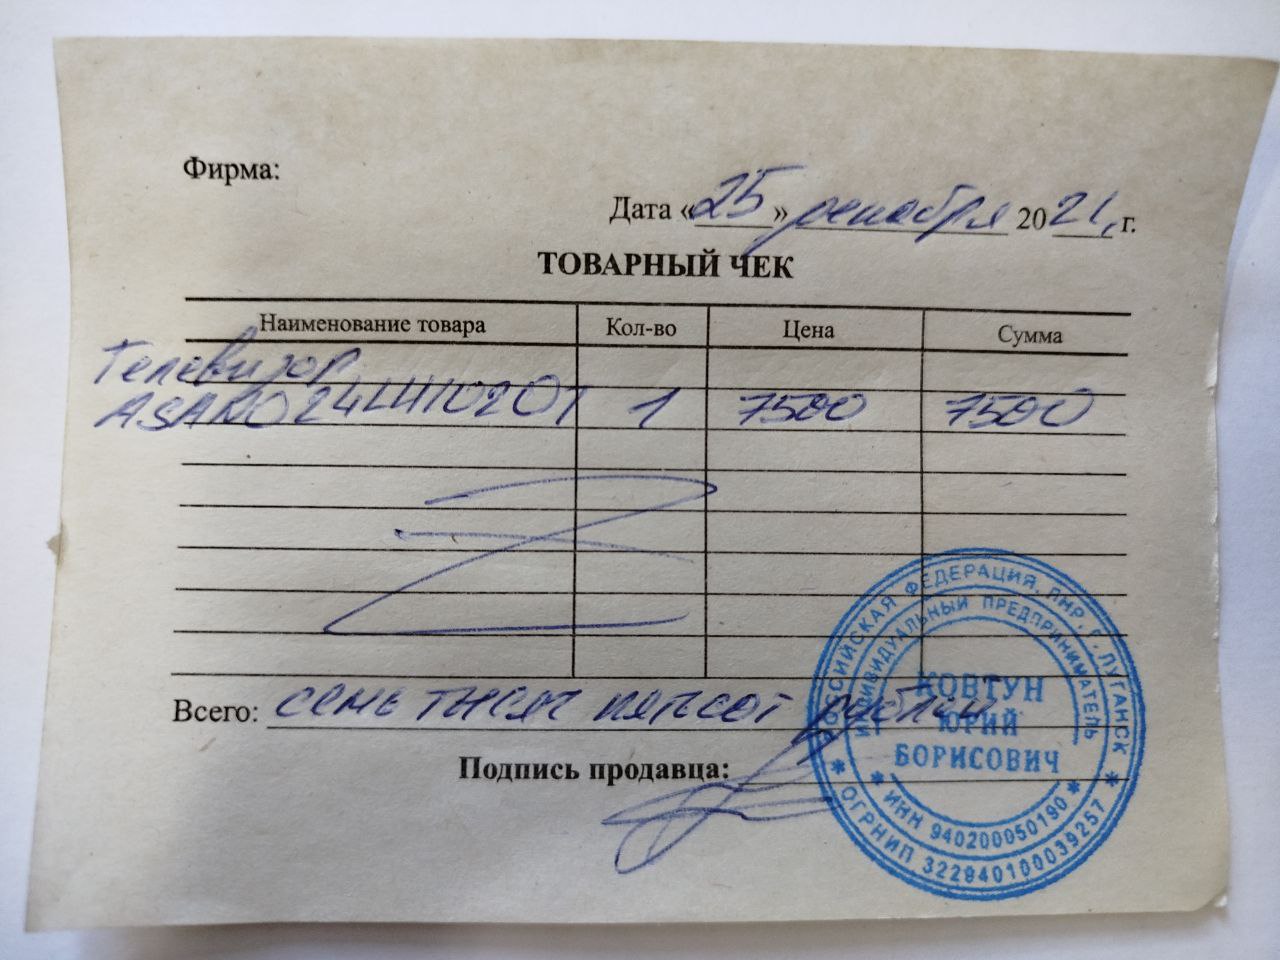 Фирма:
Дата «25» декабря 2021 г.
ТОВАРНЫЙ ЧЕК
Наименование товара Кол-во Цена Сумма
Телевизор
ASANO 24LH1020T 1 7500 7500
Всего: семь тысяч пятьсот рублей
Подпись продавца:
РОССИЙСКАЯ ФЕДЕРАЦИЯ, ЛНР, Г. ЛУГАНСК
ИНДИВИДУАЛЬНЫЙ ПРЕДПРИНИМАТЕЛЬ
КОВТУН
ЮРИЙ
БОРИСОВИЧ
* ИНН 940200050190 *
* ОГРНИП 322940100039257 *